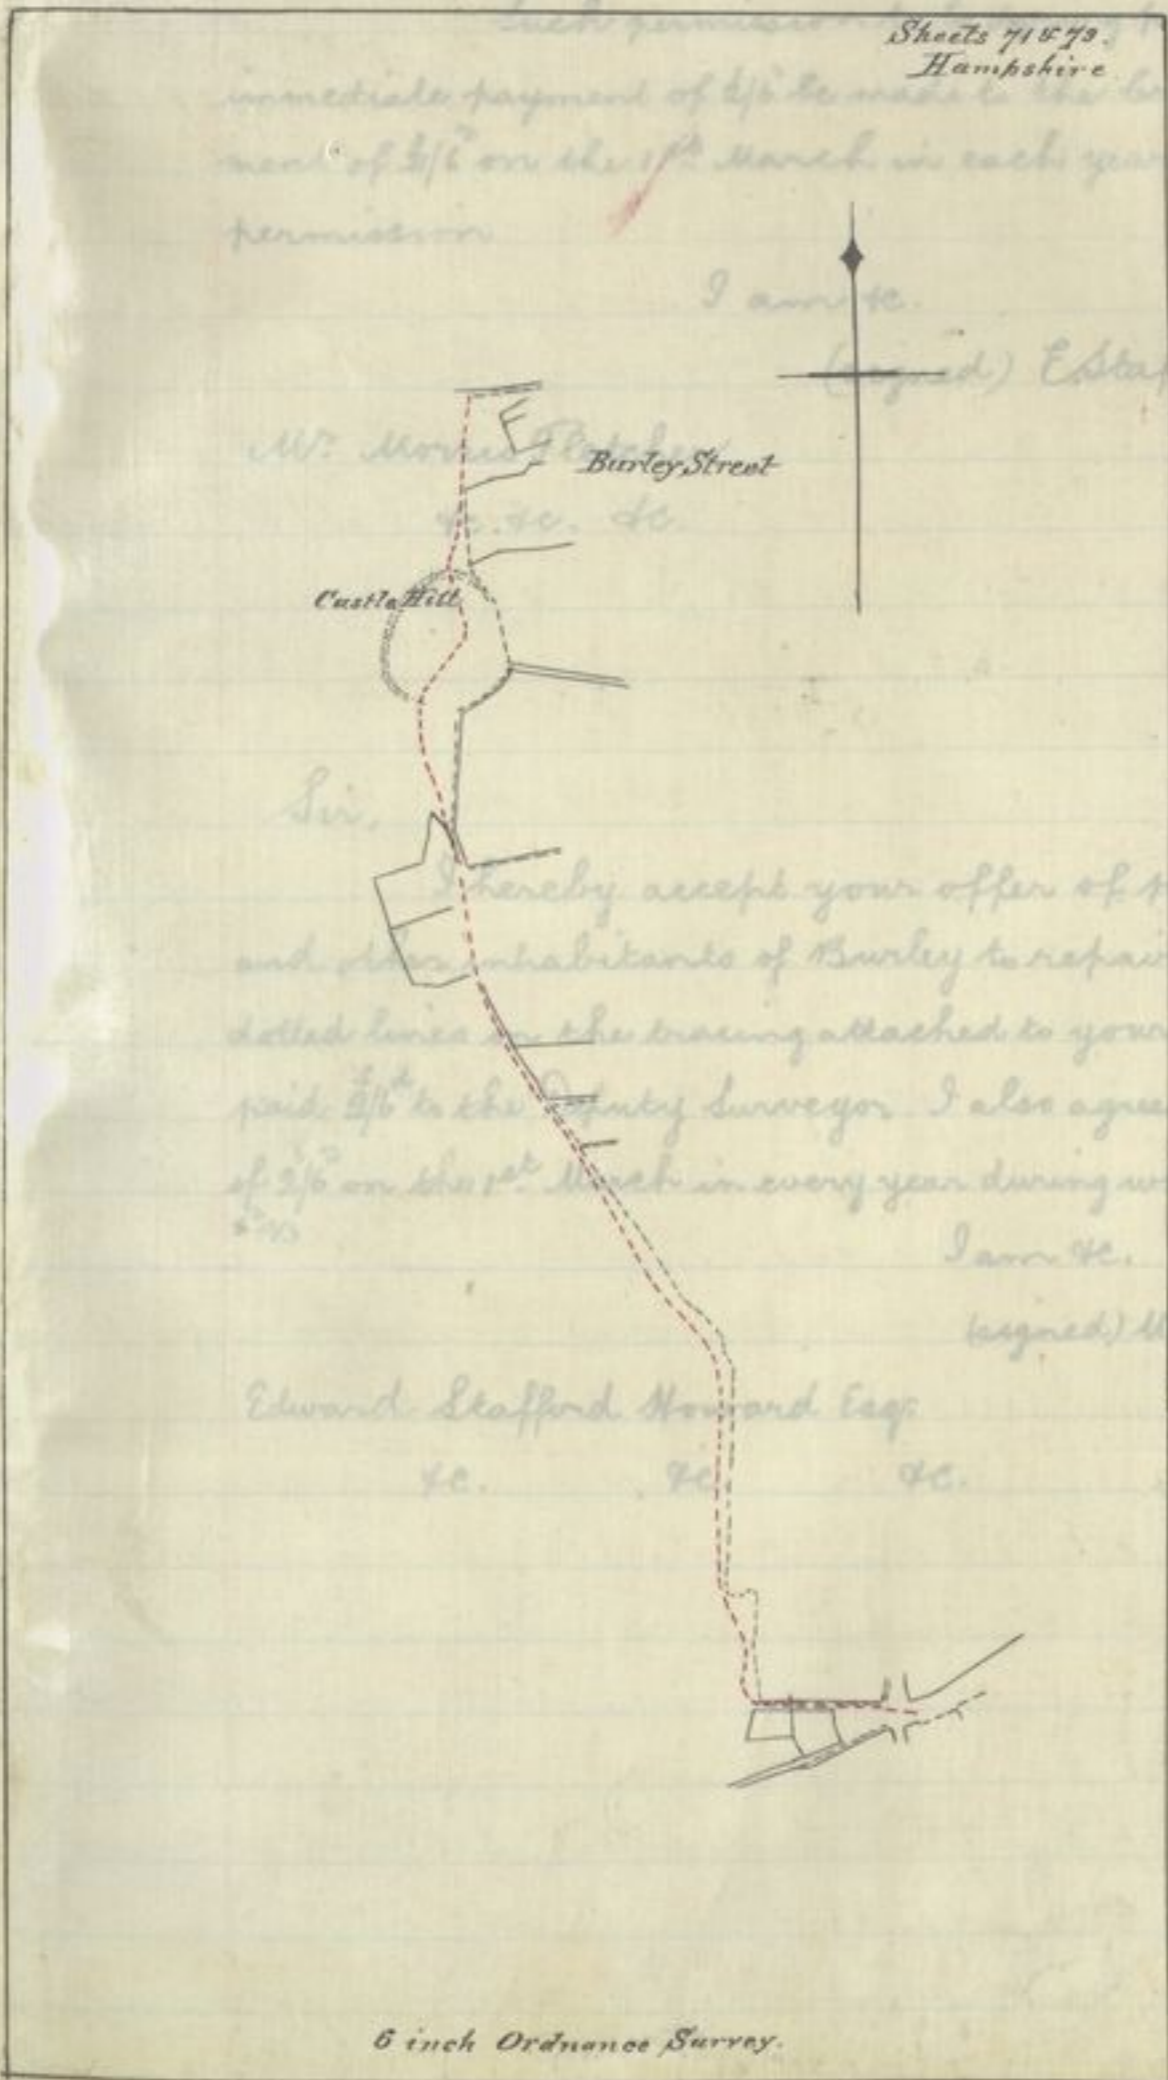 Such permission
Sheets 71 & 79.
Hampshire
immediate payment of 2/6 be made to the
ment of 2/6 on the 1st March in each year
permission
I am &c.
(signed) E. Sta
Mr. Morris Fletcher
Burley Street
&c. &c. &c.
Castle Hill
Sir,
I hereby accept your offer of
and other inhabitants of Burley to repair
dotted lines in the tracing attached to your
paid 2/6 to the Deputy Surveyor. I also agree
of 2/6 on the 1st March in every year during
I am &c.
(signed) M
Edward Stafford Howard Esq:
&c. &c. &c.
6 inch Ordnance Survey.